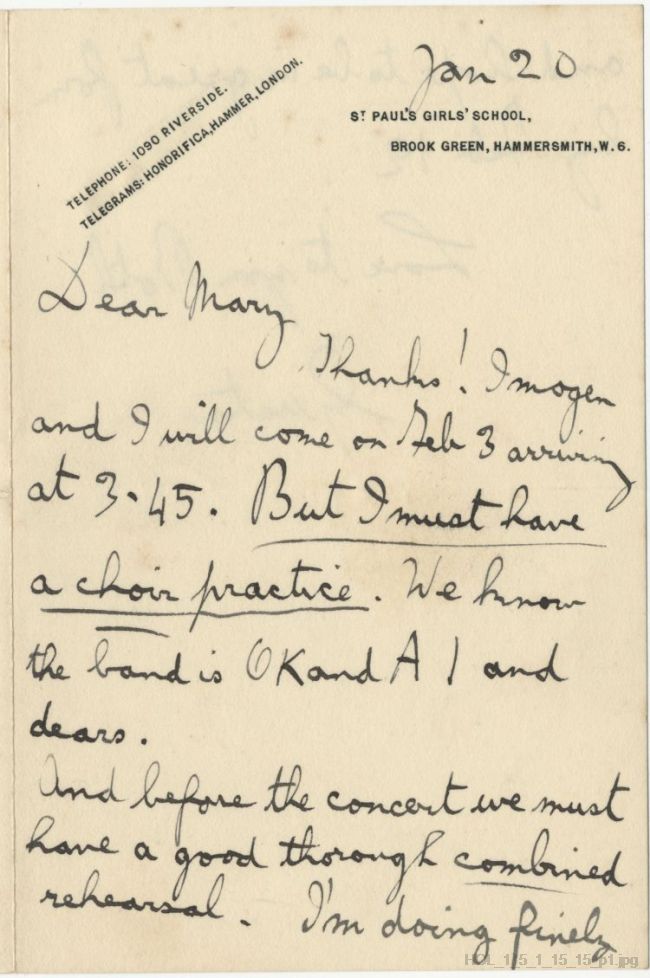 Jan 20
TELEPHONE: 1090 RIVERSIDE.
TELEGRAMS: HONORIFICA, HAMMER, LONDON.
ST PAUL'S GIRLS' SCHOOL,
BROOK GREEN, HAMMERSMITH, W. 6.
Dear Mary
Thanks! Imogen
and I will come on Feb 3 arriving
at 3.45. But I must have
a choir practice. We know
the band is OK and A 1 and
dears.
And before the concert we must
have a good thorough combined
rehearsal. I'm doing finely
HOL_1_15_1_15_15-p1.jpg